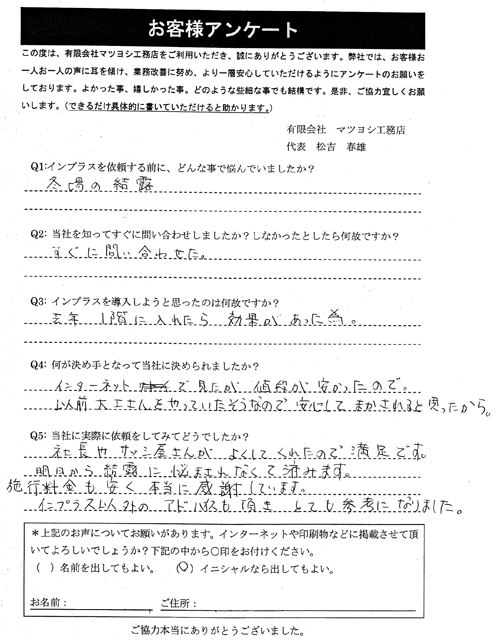 お客様アンケート
この度は、有限会社マツヨシ工務店をご利用いただき、誠にありがとうございます。弊社では、お客様お
一人お一人の声に耳を傾け、業務改善に努め、より一層安心していただけるようにアンケートのお願いを
しております。よかった事、嬉しかった事。どのような些細な事でも結構です。是非、ご協力宜しくお願
いします。（できるだけ具体的に書いていただけると助かります。）
有限会社　マツヨシ工務店
代表　松吉　春雄
Q1:インプラスを依頼する前に、どんな事で悩んでいましたか？
冬場の結露
Q2: 当社を知ってすぐに問い合わせしましたか？しなかったとしたら何故ですか？
すぐに問い合わせた。
Q3: インプラスを導入しようと思ったのは何故ですか？
去年 1階に入れたら 効果があった為。
Q4: 何が決め手となって当社に決められましたか？
インターネットで見たが 値段が安かったので。
以前 大工さんをやっていたそうなので 安心して まかされると思ったから。
Q5: 当社に実際に依頼をしてみてどうでしたか？
社長や サッシ屋さんが よくしてくれたので 満足です。
明日から 結露に 悩まされなくて 済みます。
施行料金も 安く 本当に 感謝しています。
インプラス以外の アドバイスも 頂き とても 参考に なりました。
＊上記のお声についてお願いがあります。インターネットや印刷物などに掲載させて頂
いてよろしいでしょうか？下記の中から○印をお付けください。
（　）名前を出してもよい。　（○）イニシャルなら出してもよい。
お名前：　　　　　　　ご住所：
ご協力本当にありがとうございました。